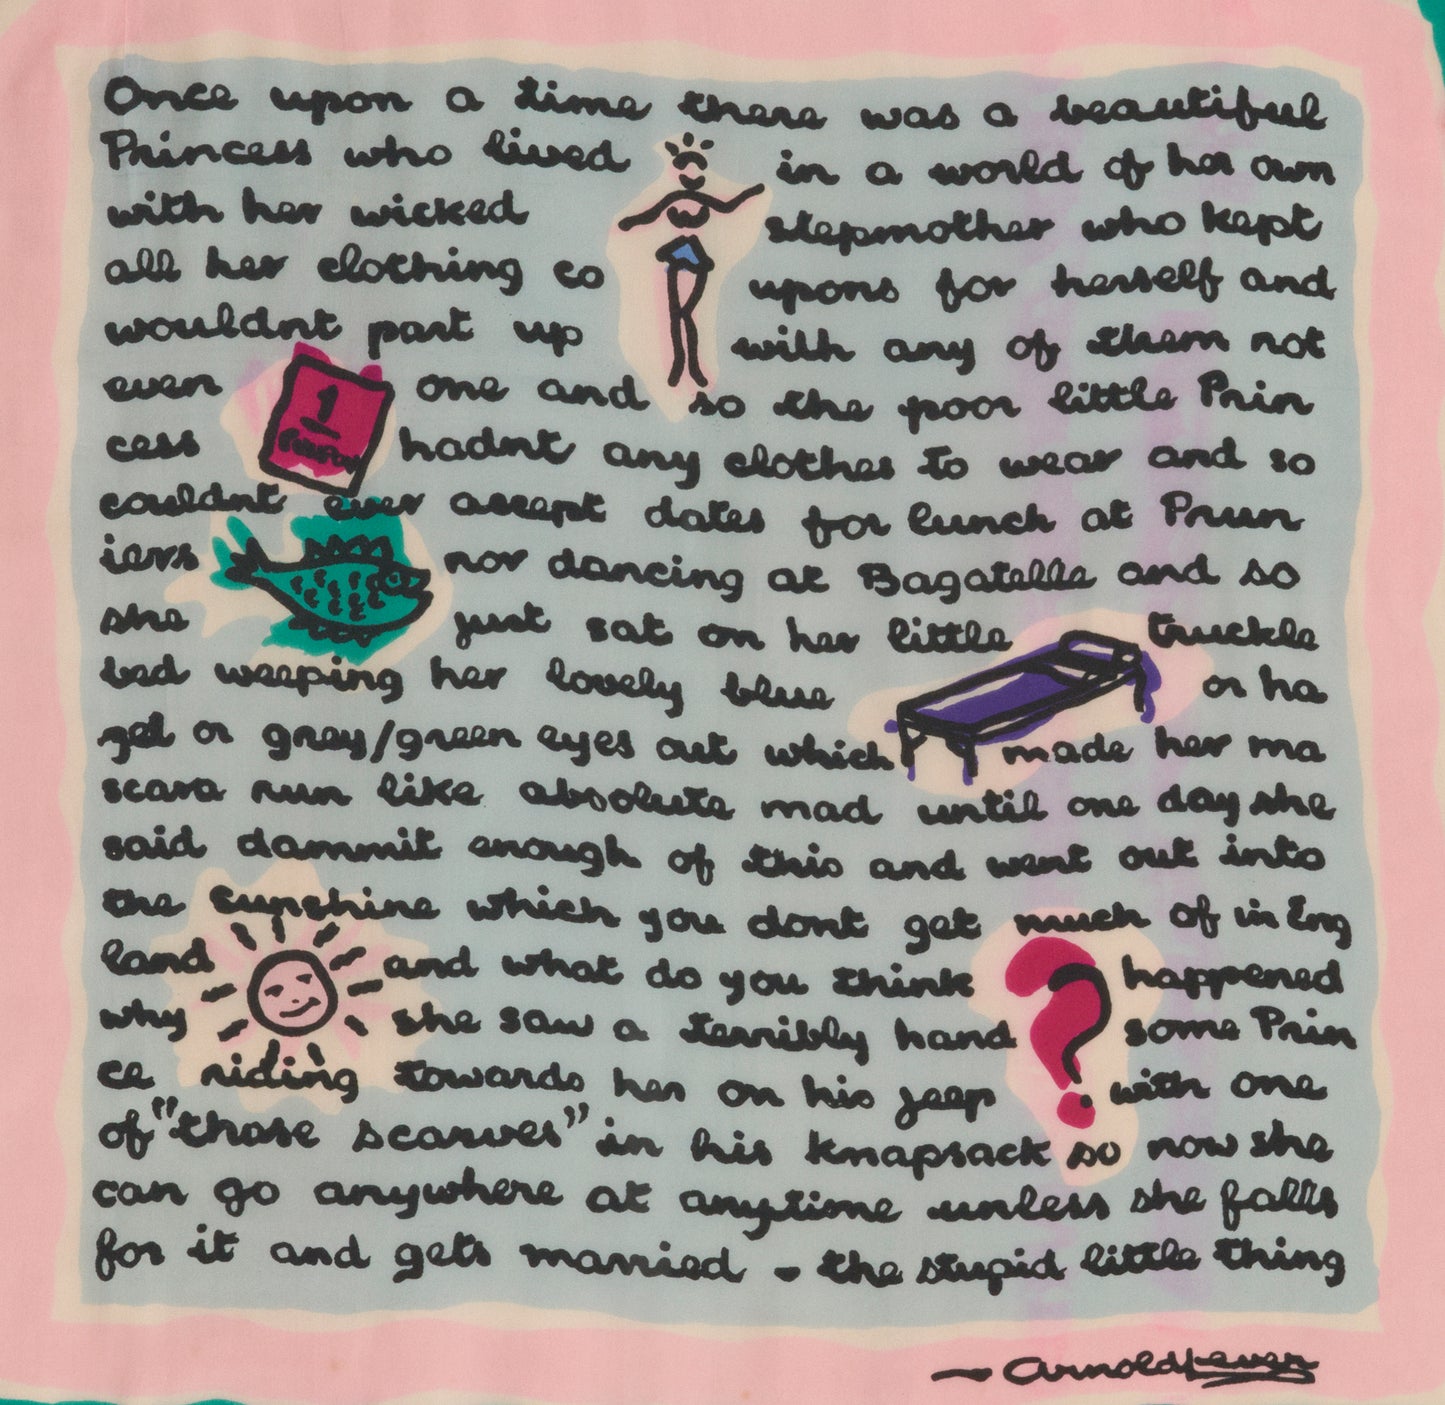 Once upon a time there was a beautiful
Princess who lived in a world of her own
with her wicked stepmother who kept
all her clothing co upons for herself and
wouldnt part up with any of them not
even one and so the poor little Prin
1
cess hadnt any clothes to wear and so
couldnt ever accept dates for lunch at Prun
iers nor dancing at Bagatelle and so
she just sat on her little truckle
bed weeping her lovely blue or ha
zel or grey/green eyes out which made her ma
scara run like absolute mad until one day she
said dammit enough of this and went out into
the Sunshine which you dont get much of in Eng
land and what do you think happened
why she saw a terribly hand some Prin
ce riding towards her on his jeep with one
of "those scarves" in his knapsack so now she
can go anywhere at anytime unless she falls
for it and gets married - the stupid little thing
- Arnold Lever